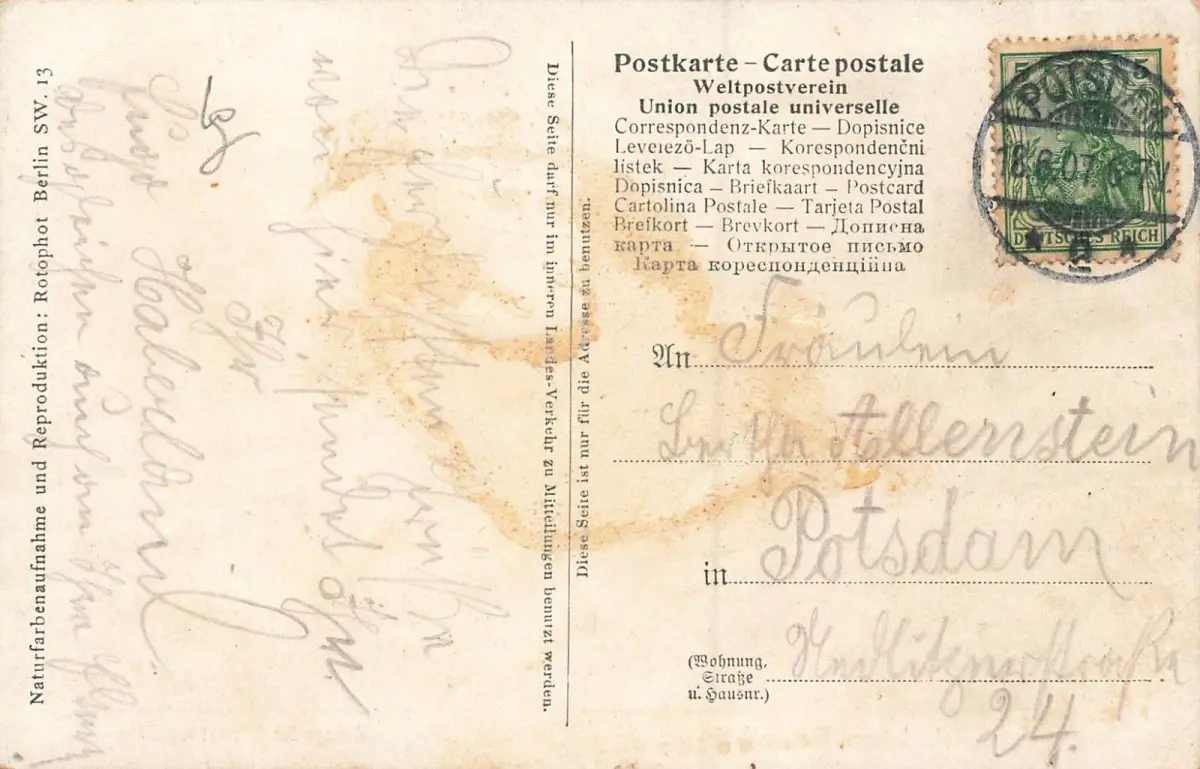 Postkarte – Carte postale
Weltpostverein
Union postale universelle
Correspondenz-Karte — Dopisnice
Levelező-Lap — Korespondenční
lístek — Karta korespondencyjna
Dopisnica — Briefkaart — Postcard
Cartolina Postale — Tarjeta Postal
Brefkort — Brevkort — Дописна
карта — Открытое письмо
Карта кореспонденційна
POTSDAM
18.6.07. 6-7V
5 5
DEUTSCHES REICH
An Fräulein
Bertha Allenstein
in Potsdam
(Wohnung, Straße u. Hausnr.)
24.
Diese Seite ist nur für die Adresse zu benutzen.
Diese Seite darf nur im inneren Landes-Verkehr zu Mitteilungen benutzt werden.
Die
Grüße
von hier sendet Ihn.
Ihr
Haberldin
Naturfarbenaufnahme und Reproduktion: Rotophot Berlin SW. 13